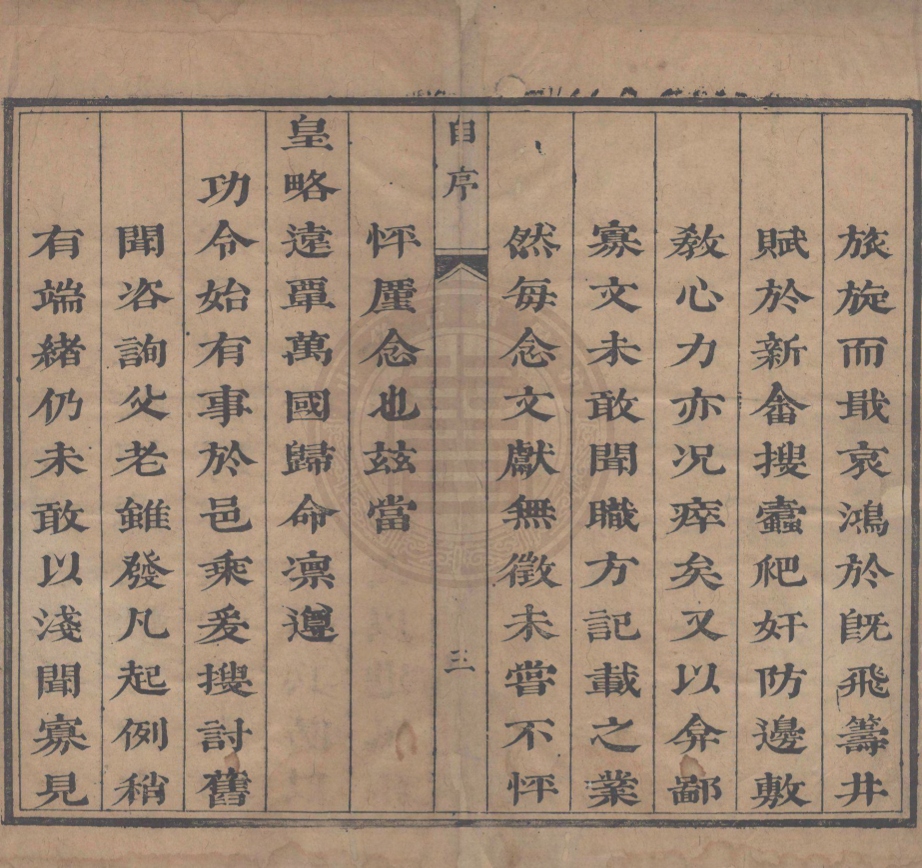 旅旋而戢哀鴻於既飛籌井
賦於新畬搜蠹爬奸防邊敷
教心力亦况瘁矣又以弇鄙
寡文未敢聞職方記載之業
然每念文獻無徵未嘗不怦
自序
三
怦廑念也玆當
皇略遠覃萬國歸命凛遵
功令始有事於邑乘爰搜討舊
聞咨詢父老雖發凡起例稍
有端緒仍未敢以淺聞寡見